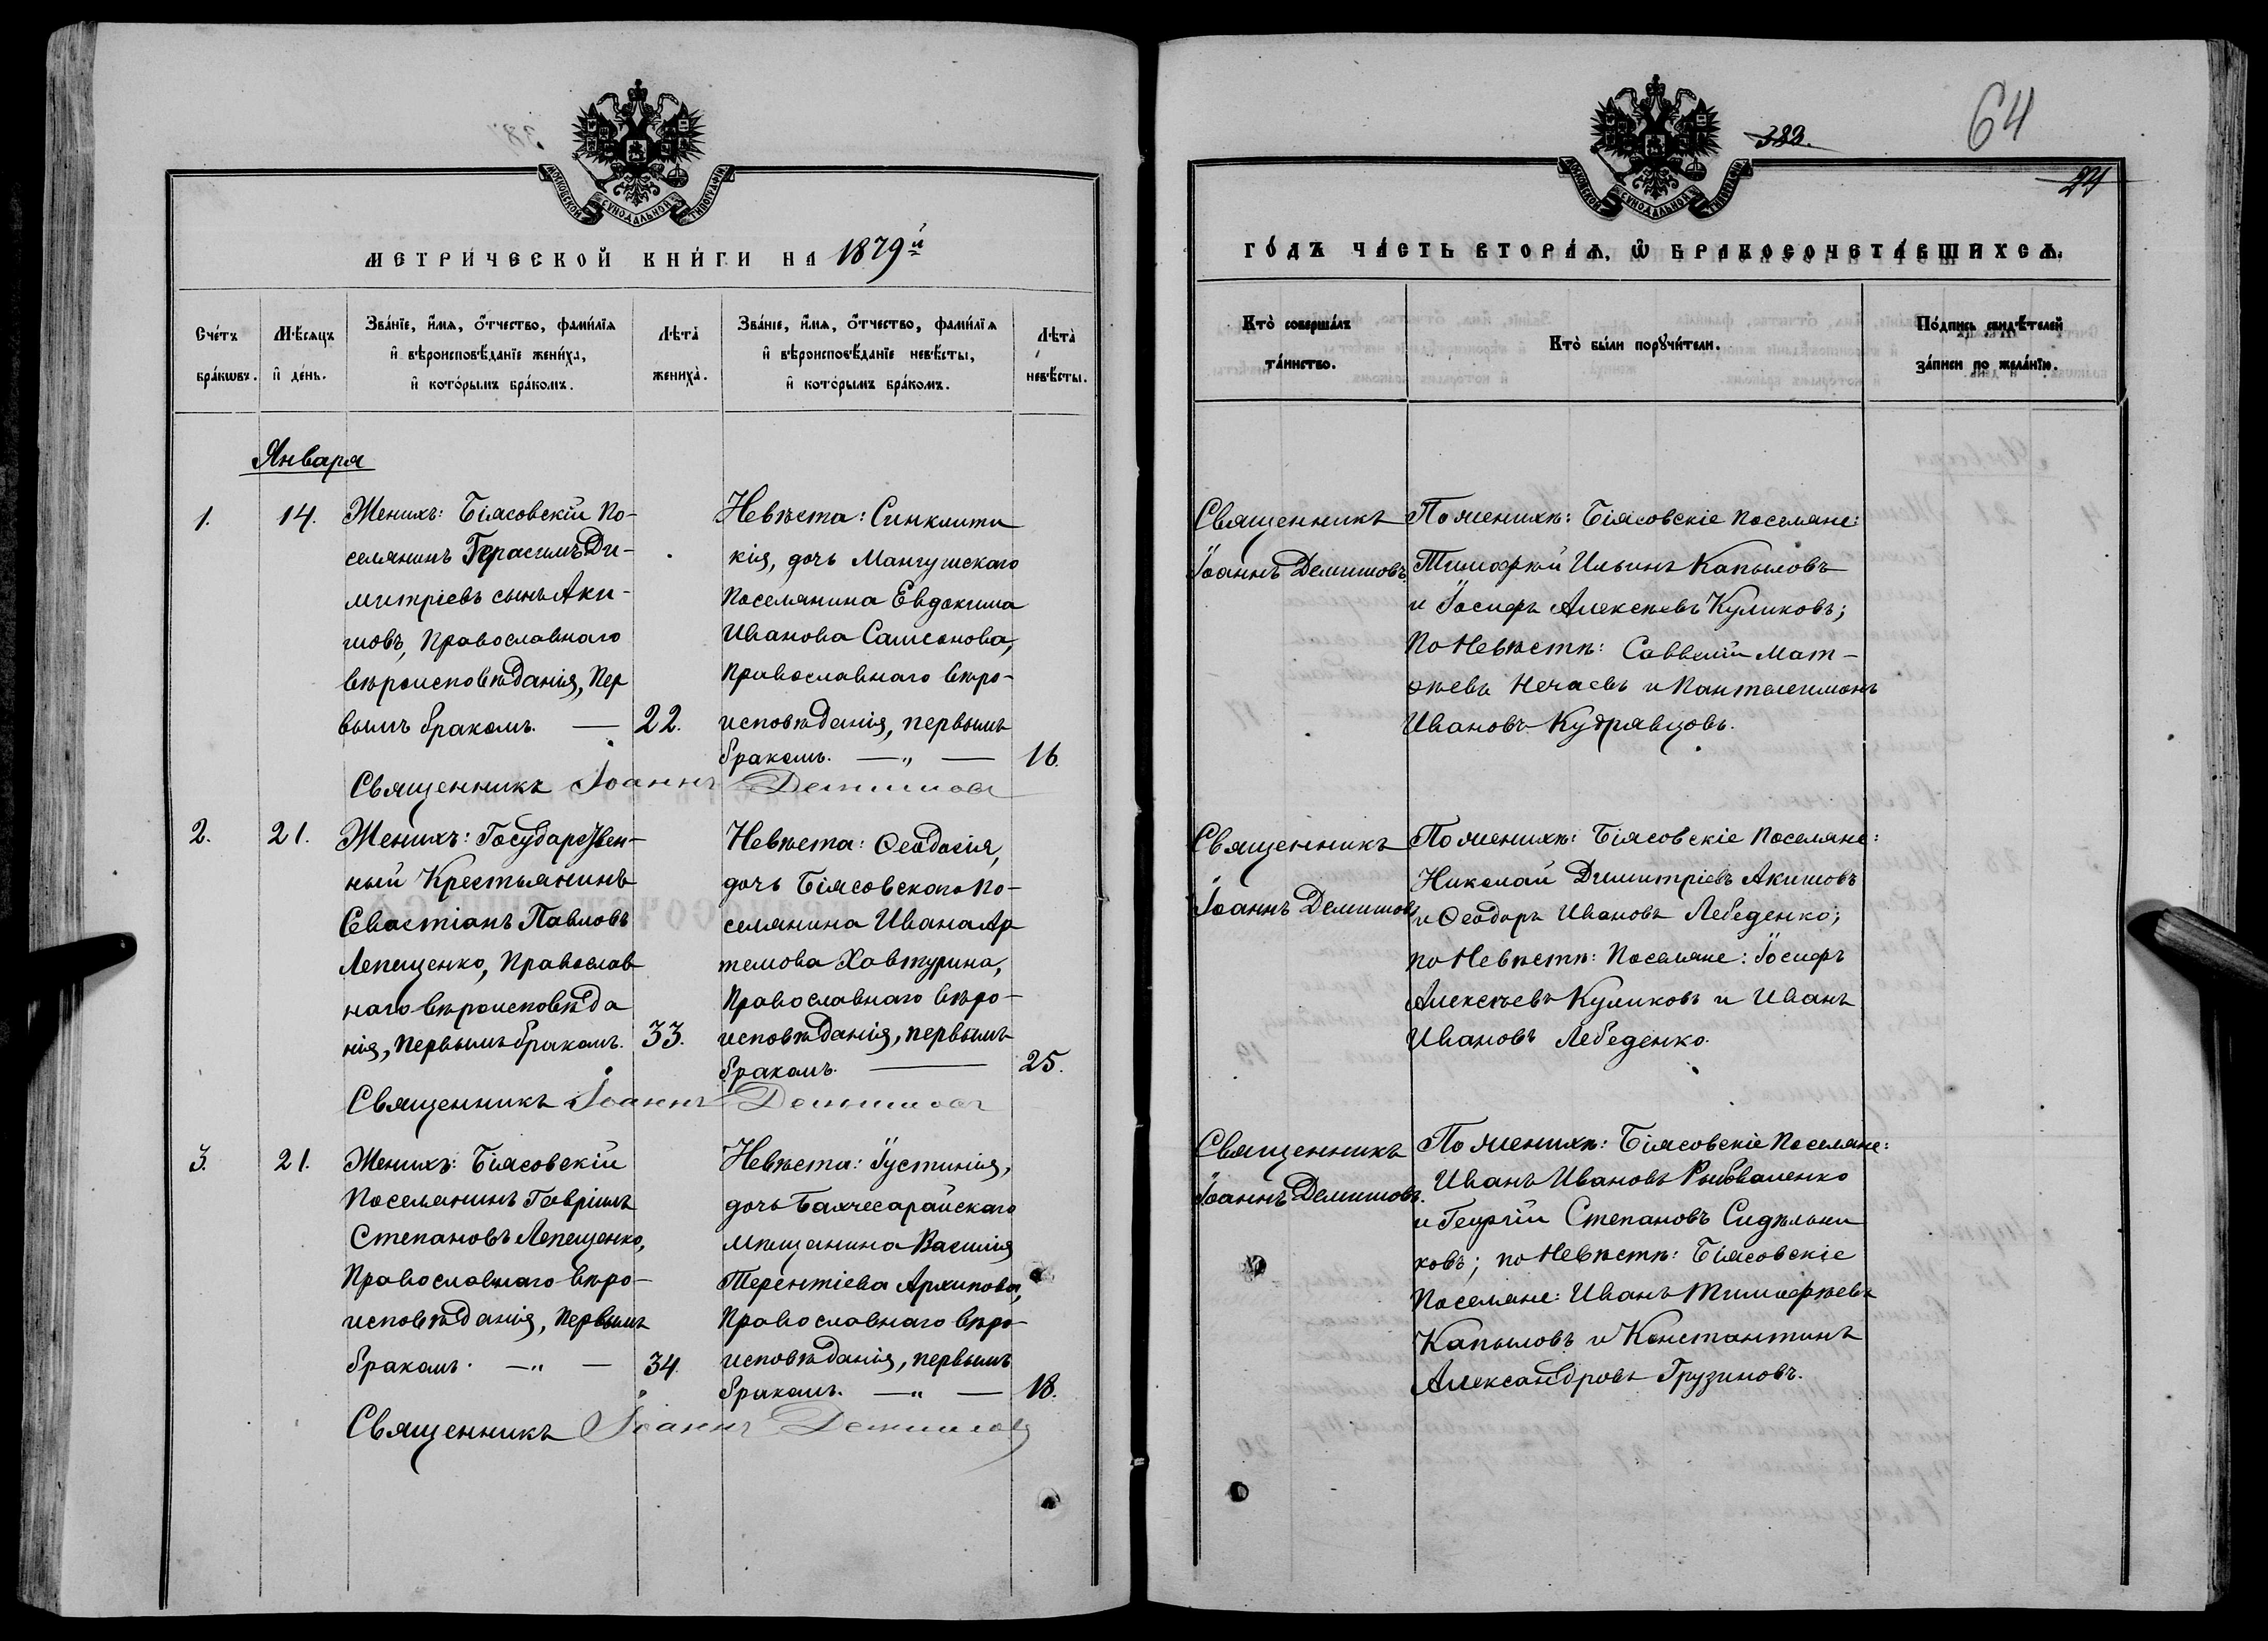 МОСКОВСКОЙ СѴНОДАЛЬНОЙ ТИПОГРАФІИ
МЕТРИ́ЧЕСКОЙ КНИ́ГИ НА 1879й
Сче́тъ
бра́кѡвъ.
Мѣ́сяцъ
и҆ де́нь.
Зва́нїе, и҆́мѧ, ѻ҆́тчество, фами́лїѧ
и҆ вѣроисповѣ́данїе жениха̀,
и҆ кото́рымъ бра́комъ.
Лѣ́та̀
жениха̀.
Зва́нїе, и҆́мѧ, ѻ҆́тчество, фами́лїѧ
и҆ вѣроисповѣ́данїе невѣ́сты,
и҆ кото́рымъ бра́комъ.
Лѣ́та̀
невѣ́сты.
Января
1.
14.
Женихъ: Біясовскій По-
селянинъ Герасимъ Ди-
митріевъ сынъ Аки-
мовъ, Православнаго
вѣроисповѣданія, Пер
вымъ бракомъ. — 22.
Невѣста: Синклити
кія, дочь Мангушскаго
Поселянина Евдокима
Иванова Самсонова,
Православнаго вѣро-
исповѣданія, первымъ
бракомъ. — „ — 16.
Священникъ Іоаннъ Демишовъ
2.
21.
Женихъ: Государствен-
ный Крестьянинъ
Севастіанъ Павловъ
Лепещенко, Православ
наго вѣроисповѣда
нія, Первымъ бракомъ. 33.
Невѣста: Ѳеодосія,
дочь Біясовского По-
селянина Ивана Ар
темова Хавтурина,
Православнаго вѣро-
исповѣданія, первымъ
бракомъ. — 25.
Священникъ Іоаннъ Демишовъ
3.
21.
Женихъ: Біясовскій
Поселянинъ Гавріилъ
Степановъ Лепещенко,
Православнаго вѣро-
исповѣданія, Первымъ
бракомъ. — „ — 34.
Невѣста: Іустинія,
дочь Бахчесарайскаго
мѣщанина Василія
Терентіева Архипова,
Православнаго вѣро-
исповѣданія, первымъ
бракомъ. — „ — 18.
Священникъ Іоаннъ Демишовъ
383.
64
МОСКОВСКОЙ СѴНОДАЛЬНОЙ ТИПОГРАФІИ
ГО́ДЪ ЧА́СТЬ ВТОРА́Ѧ, Ѽ БРАКОСОЧЕТА́ВШИХСѦ.
Кто̀ соверша́лъ
та́инство.
Кто̀ бы́ли порꙋчи́тели.
По́дпись свидѣ́телей
за́писи по жела́нїю.
Священникъ
Іоаннъ Демишовъ.
По женихѣ: Біясовскіе поселяне:
Тимофѣй Ильинъ Капыловъ
и Іосифъ Алексѣевъ Куликовъ;
По Невѣстѣ: Савелій Мат-
ѳѣевъ Нечаевъ и Пантелеимонъ
Ивановъ Кудрявцовъ.
Священникъ
Іоаннъ Демишовъ
По женихѣ: Біясовскіе Поселяне:
Николай Димитріевъ Акимовъ
и Ѳеодоръ Ивановъ Лебеденко;
по Невѣстѣ: Поселяне: Іосифъ
Алексѣевъ Куликовъ и Иванъ
Ивановъ Лебеденко.
Священникъ
Іоаннъ Демишовъ.
По женихѣ: Біясовскіе Поселяне:
Иванъ Ивановъ Рыбваленко
и Георгій Степановъ Сидѣльни
ковъ; по Невѣстѣ: Біясовскіе
Поселяне: Иванъ Тимофѣевъ
Капыловъ и Константинъ
Александровъ Грузиновъ.